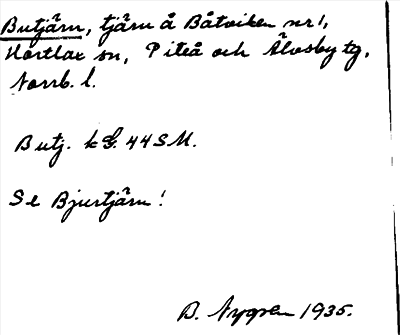 Butjärn, tjärn å Båtviken nr 1,
Hortlax sn, Piteå och Älvsby tg,
Norrb. l.
Butj. k G. 44 S M.
Se Bjurtjärn!
B. Nygren 1935.